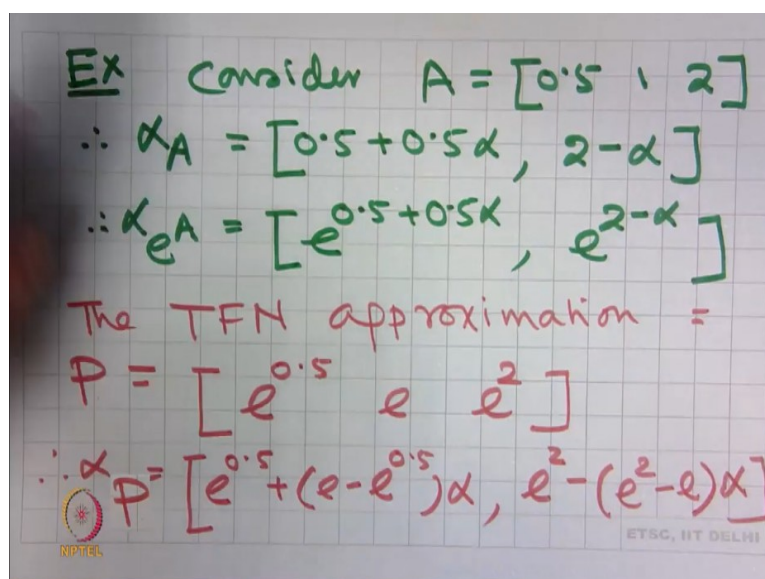 Ex Consider A = [0.5 1 2]
∴ ᵅA = [0.5 + 0.5α, 2-α]
∴ ᵅe^A = [e^{0.5+0.5α}, e^{2-α}]
The TFN approximation =
P = [e^{0.5} e e^2]
∴ ᵅP = [e^{0.5} + (e - e^{0.5})α, e^2 - (e^2 - e)α]
NPTEL
ETSC, IIT DELHI